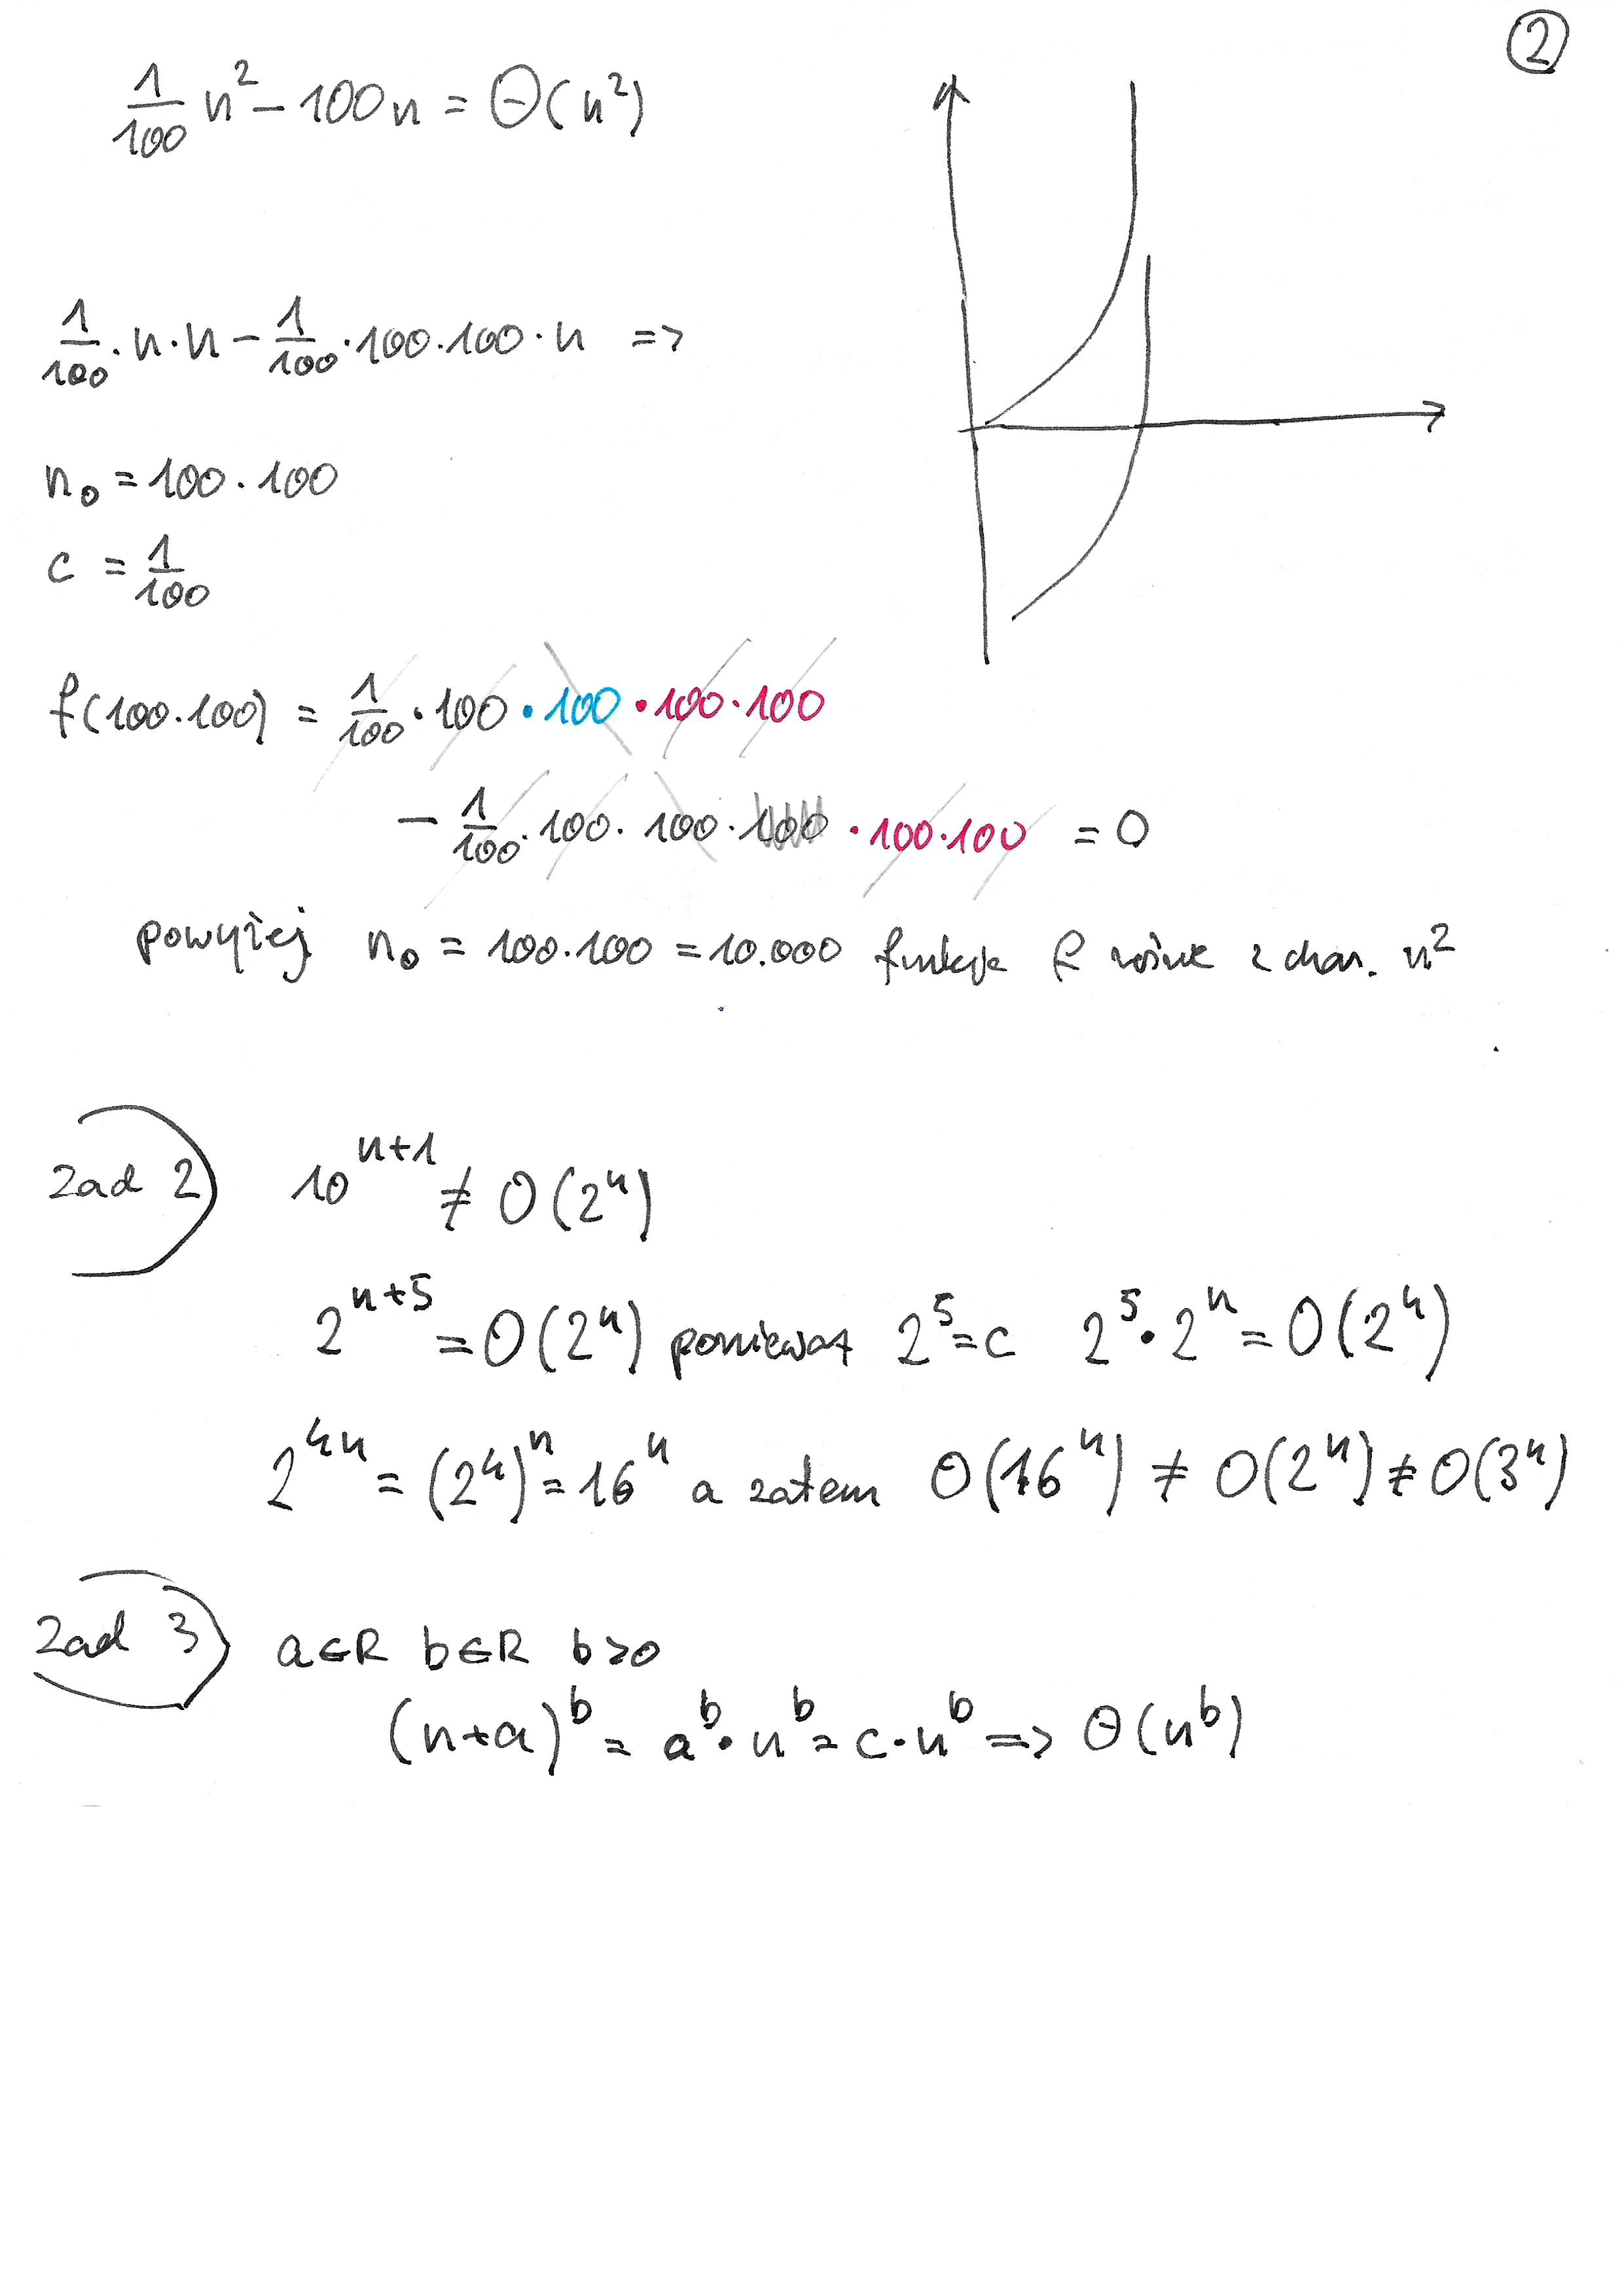 ②
1/100 n² - 100n = Θ(n²)
1/100 · n · n - 1/100 · 100 · 100 · n =>
n₀ = 100 · 100
c = 1/100
f(100.100) = 1/100 · 100 · 100 · 100 · 100
- 1/100 · 100 · 100 · 100 · 100 · 100 = 0
powyżej n₀ = 100.100 = 10.000 funkcja f rośnie z char. n²
Zad 2) 10ⁿ⁺¹ ≠ O(2ⁿ)
2ⁿ⁺⁵ = O(2ⁿ) ponieważ 2⁵ = c 2⁵ · 2ⁿ = O(2ⁿ)
2⁴ⁿ = (2⁴)ⁿ = 16ⁿ a zatem O(16ⁿ) ≠ O(2ⁿ) ≠ O(3ⁿ)
Zad 3) a∈R b∈R b>0
(n+a)ᵇ = aᵇ · nᵇ = c · nᵇ => Θ(nᵇ)